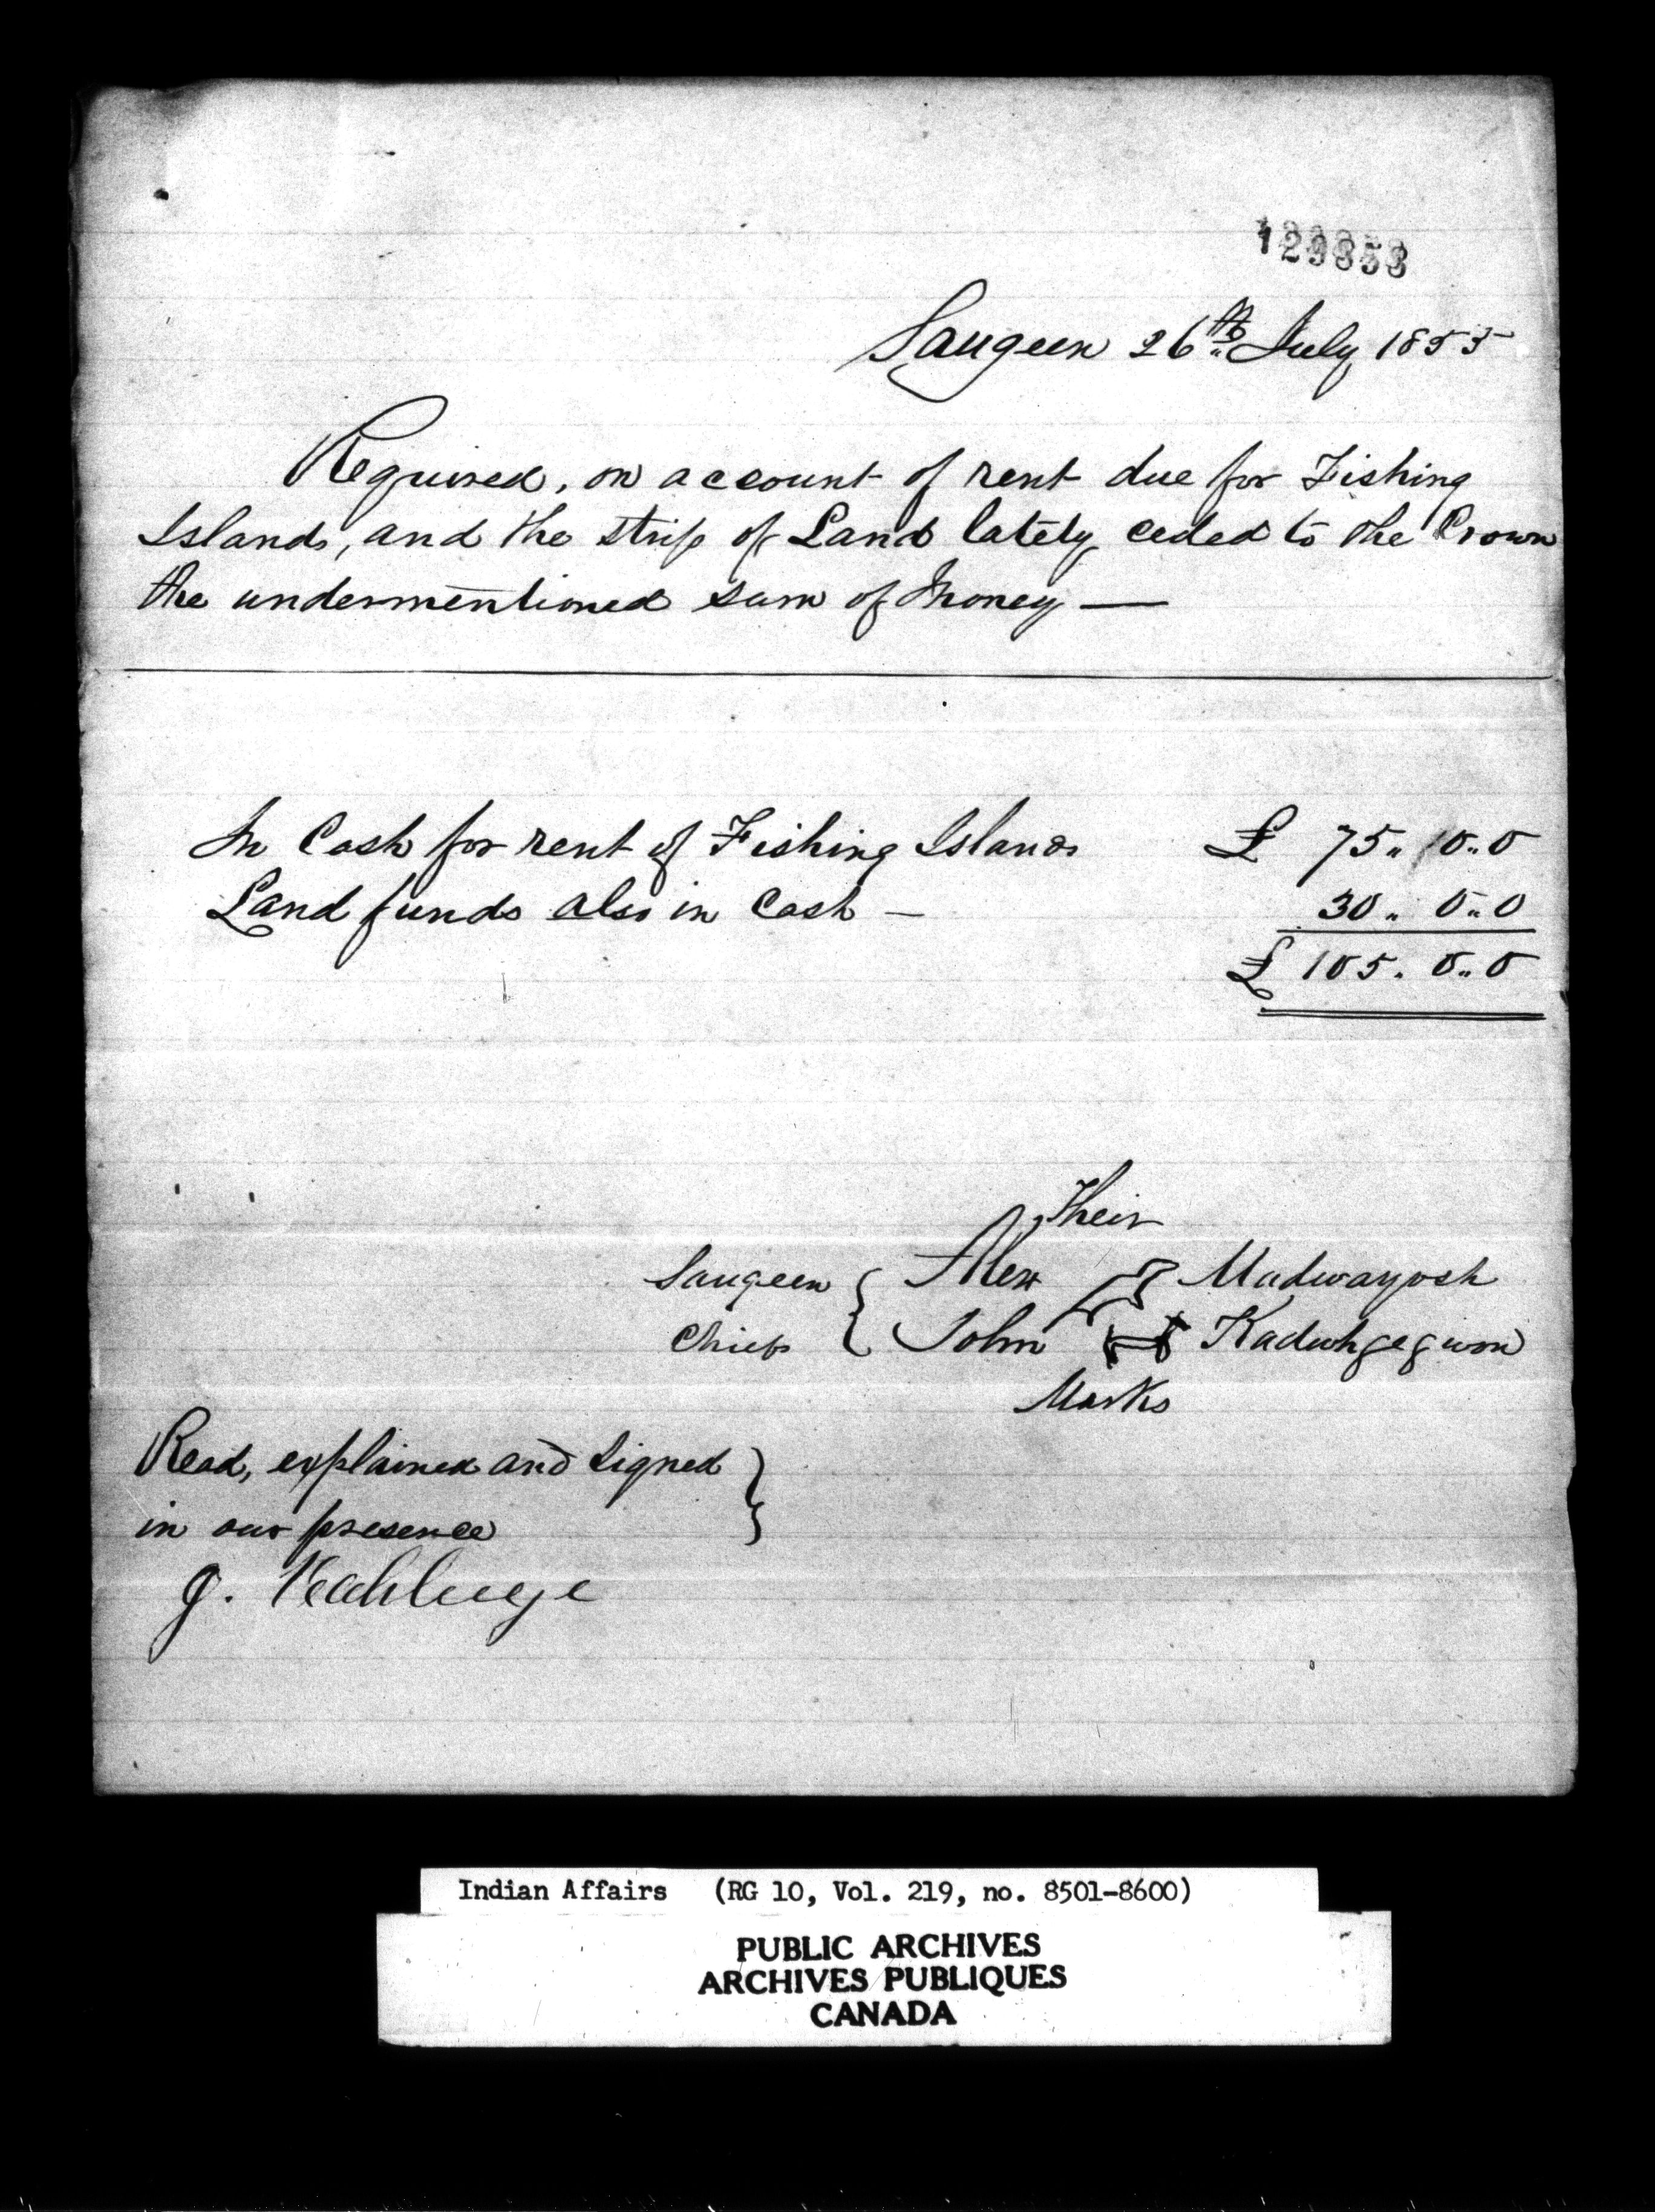 Saugeen 26th July 1855
Required, on account of rent due for Fishing
Islands, and the strip of Land lately ceded to the Crown
the undermentioned sum of Money —
In Cash for rent of Fishing Islands £ 75..10..0
Land funds also in Cash — 30.. 0..0
£ 105. 0..0
Their
Saugeen { Alexr Madwayosh
Chiefs { John Kaduhgegwon
Marks
Read, explained and signed }
in our presence }
J.
Indian Affairs (RG 10, Vol. 219, no. 8501-8600)
PUBLIC ARCHIVES
ARCHIVES PUBLIQUES
CANADA